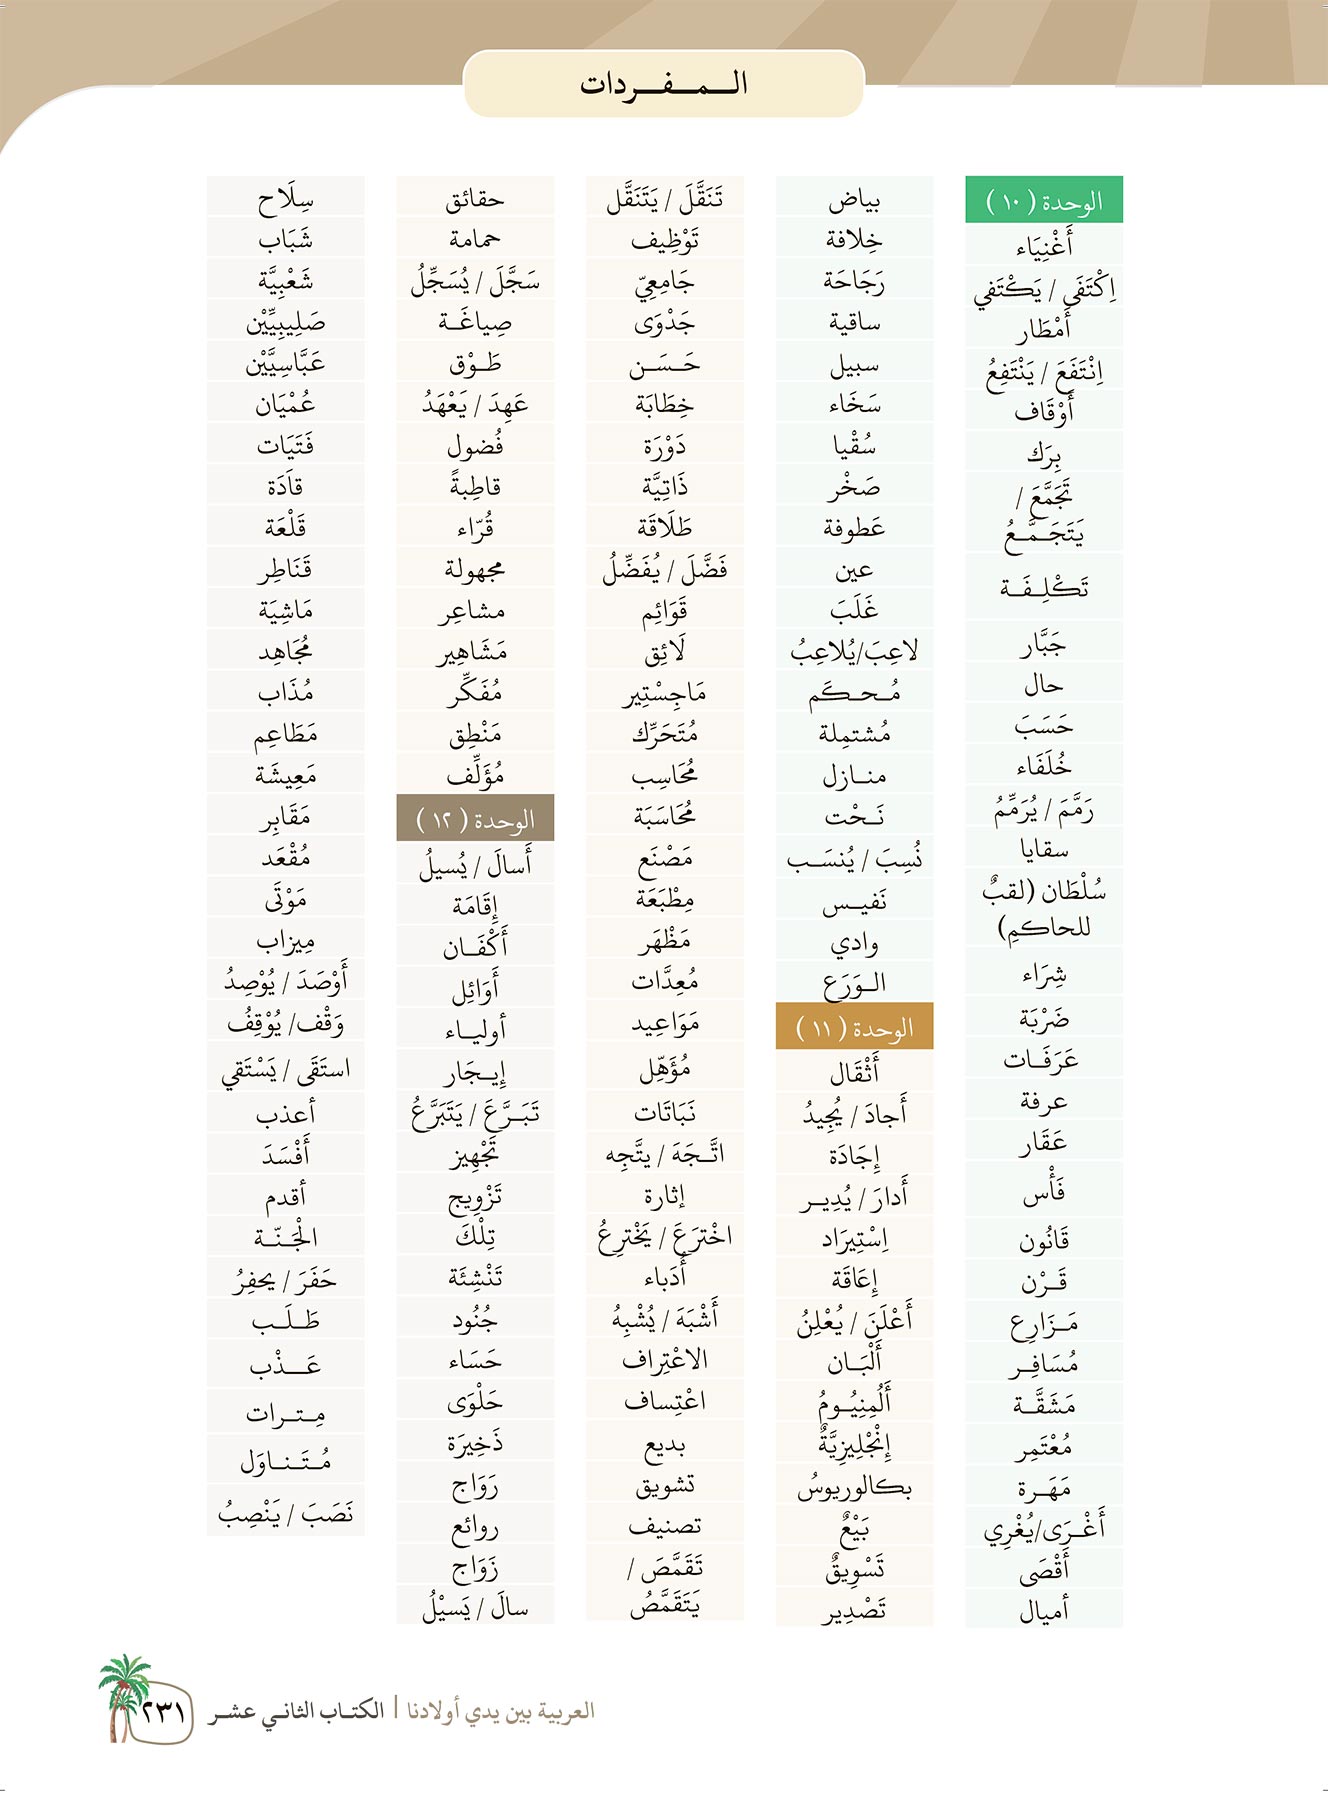 الـمـفـردات
الوحدة ( ١٠ )
أَغْنِيَاء
اِكْتَفَى / يَكْتَفي
أَمْطَار
اِنْتَفَعَ / يَنْتَفِعُ
أَوْقَاف
بِرَك
تَجَمَّعَ /
يَتَجَـمَّـعُ
تَكْـلِـفَـة
جَبَّار
حال
حَسَبَ
خُلَفَاء
رَمَّمَ / يُرَمِّمُ
سقايا
سُلْطَان (لقبٌ
للحاكمِ)
شِرَاء
ضَرْبَة
عَرَفَـات
عرفة
عَقَار
فَأْس
قَانُون
قَـرْن
مَـزَارِع
مُسَافِـر
مَشَقَّـة
مُعْتَمِر
مَهَـرة
أَغْـرَى/يُغْرِي
أَقْصَى
أميال
بياض
خِلافة
رَجَاحَة
ساقية
سبيل
سَخَاء
سُقْيا
صَخْر
عَطوفة
عين
غَلَبَ
لاعِبَ/يُلاعِبُ
مُـحـكَـم
مُشتمِلة
منـازل
نَـحْت
نُسِبَ / يُنسَـب
نَفيـس
وادي
الـوَرَع
الوحدة ( ١١ )
أَثْقَال
أَجادَ / يُجِيدُ
إِجَادَة
أَدارَ / يُدِيـر
اِسْتِيرَاد
إِعَاقَة
أَعْلَنَ / يُعْلِنُ
أَلْبَـان
أَلُمِنِيُـومُ
إِنْجْلِيزِيَّةٌ
بكالوريوسُ
بَيْعٌ
تَسْوِيقٌ
تَصْدِير
تَنَقَّلَ / يَتَنَقَّل
تَوْظِيف
جَامِعِيّ
جَدْوَى
حَـسَـن
خِطَابَة
دَوْرَة
ذَاتِيَّة
طَلَاقَة
فَضَّلَ / يُفَضِّلُ
قَوَائِم
لَائِق
مَاجِسْتِير
مُتَحَرِّك
مُحَاسِب
مُحَاسَبَة
مَصْنَع
مِطْبَعَة
مَظْهَر
مُعِدَّات
مَوَاعِيد
مُؤَهِّل
نَبَاتَات
اتَّـجَهَ / يتَّجِه
إثارة
اخْترَعَ / يَخْترِعُ
أُدَباء
أَشْبَهَ / يُشْبِهُ
الاعْتِراف
اعْتِساف
بديع
تشويق
تصنيف
تَقَمَّصَ /
يَتَقَمَّصُ
حقائق
حمامة
سَجَّلَ / يُسَجِّلُ
صِياغَـة
طَـوْق
عَهِدَ / يَعْهَدُ
فُضول
قاطِبةً
قُرّاء
مجهولة
مشاعِر
مَشَاهِير
مُفَكِّر
مَنْطِق
مُؤَلِّف
الوحدة ( ١٢ )
أَسالَ / يُسيلُ
إِقَامَة
أَكْفَـان
أَوَائِل
أوليـاء
إِيـجَار
تَبَـرَّعَ / يَتَبَرَّعُ
تَجْهِيز
تَزْوِيج
تِلْكَ
تَنْشِئَة
جُنُود
حَسَاء
حَلْوَى
ذَخِيرَة
رَوَاج
روائع
زَوَاج
سالَ / يَسيْلُ
سِلَاح
شَبَاب
شَعْبِيَّة
صَلِيبِيِّيْن
عَبَّاسِيَّيْن
عُمْيَان
فَتَيَات
قاَدَة
قَلْعَة
قَنَاطِر
مَاشِيَة
مُجَاهِد
مُذَاب
مَطَاعِم
مَعِيشَة
مَقَابِر
مُقْعَد
مَوْتَى
مِيزاب
أَوْصَدَ / يُوْصِدُ
وَقْف/ يُوْقِفُ
استَقَى / يَسْتَقي
أعذب
أَفْسَدَ
أقدم
الْجَـنّـة
حَفَرَ / يحفِرُ
طَـلَـب
عَــذْب
مِـتـرات
مُـتَـنـاوَل
نَصَبَ / يَنْصِبُ
العربية بين يدي أولادنا | الكتـاب الثانـي عشـر
٢٣١